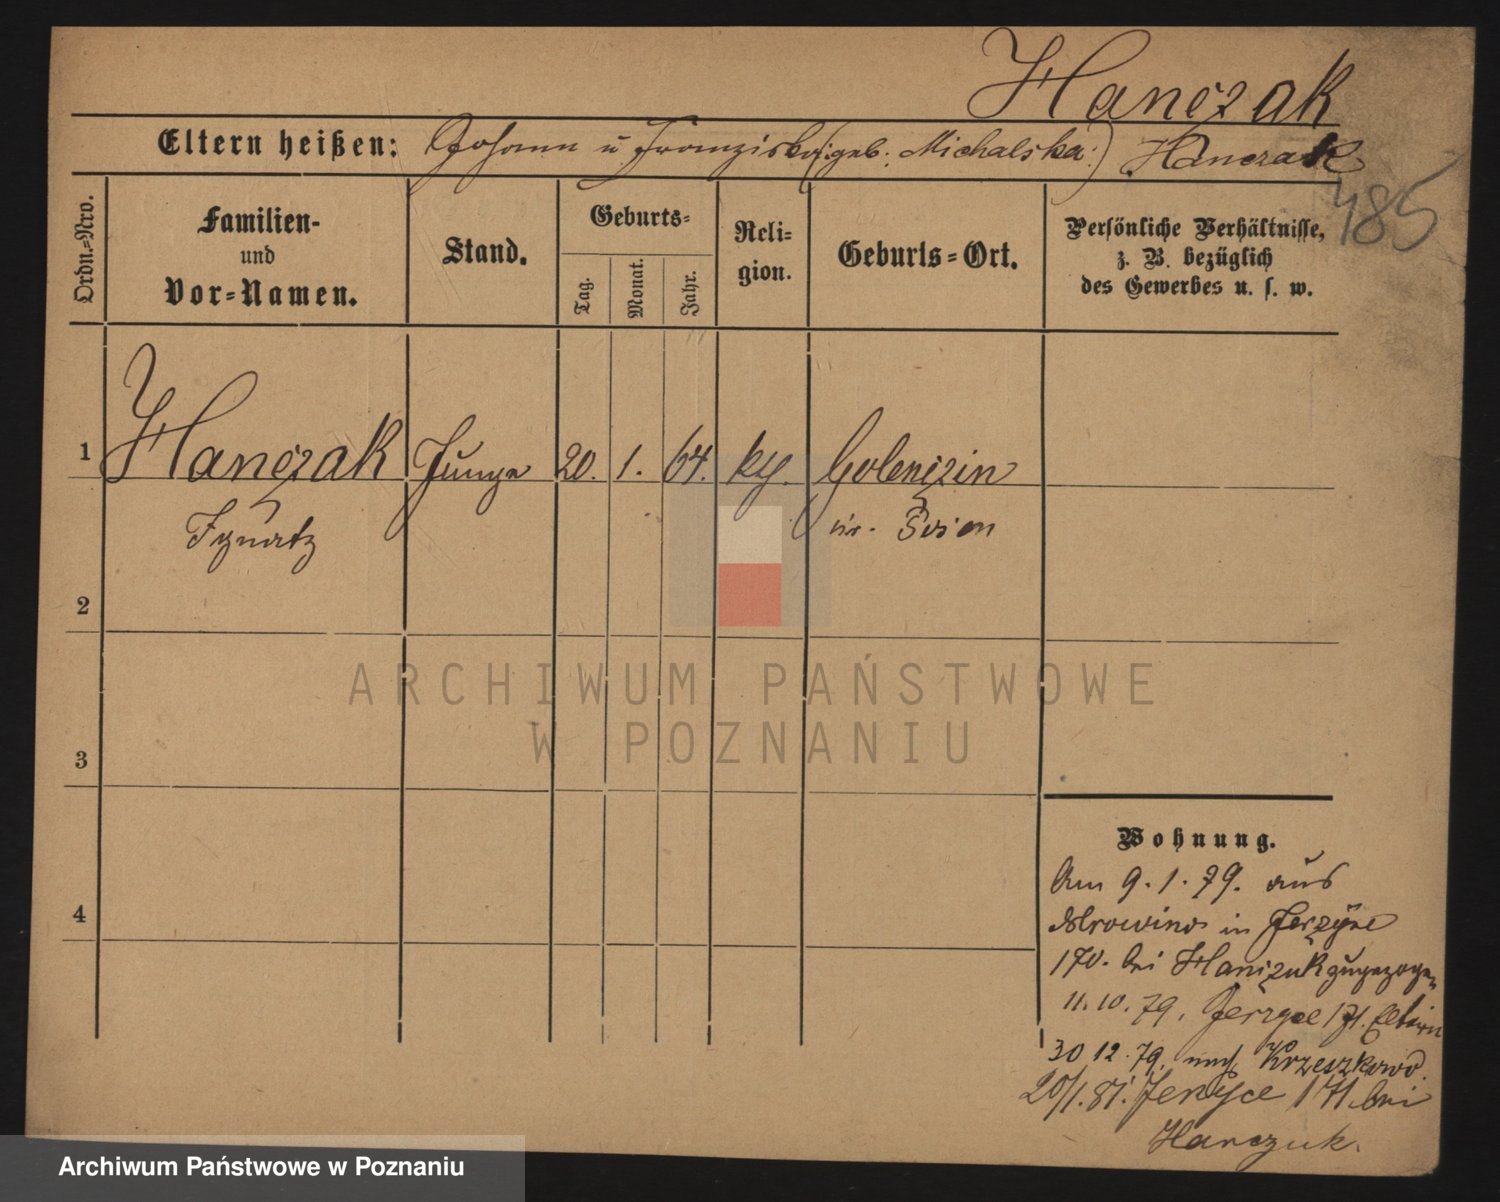 Hanczak
Eltern heißen: Johann u Franziska (:geb. Michalska:) Hanczak
485
Ordn.=Nro.
Familien-
und
Vor=Namen.
Stand.
Geburts=
Tag.
Monat.
Jahr.
Reli=
gion.
Geburts=Ort.
Persönliche Verhältnisse,
z. B. bezüglich
des Gewerbes u. s. w.
1 Hanczak Junge 20. 1. 64. kg.
Ignatz
2
3
4
ARCHIWUM PAŃSTWOWE
W POZNANIU
Wohnung.
Am 9.1.79. aus
Mrowino in Jerzyce
170. bei Hanczak zugezogen
11.10.79. Jerzyce 171. Eltern
30 12.79. nach Krzeszkowo.
20/1.81. Jerzyce 171. bei
Hanczuk.
Archiwum Państwowe w Poznaniu